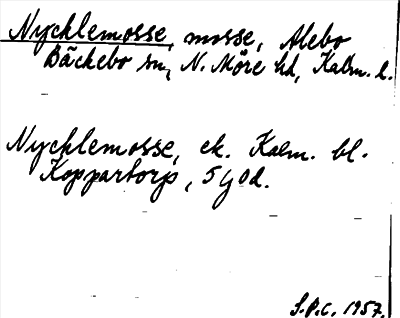 Nycklemosse, mosse, Alebo
Bäckebo sn, N. Möre hd, Kalm. l.
Nycklemosse, ek. Kalm. bl.
Koppartorp, 5 g Od.
S.P.C. 1957.